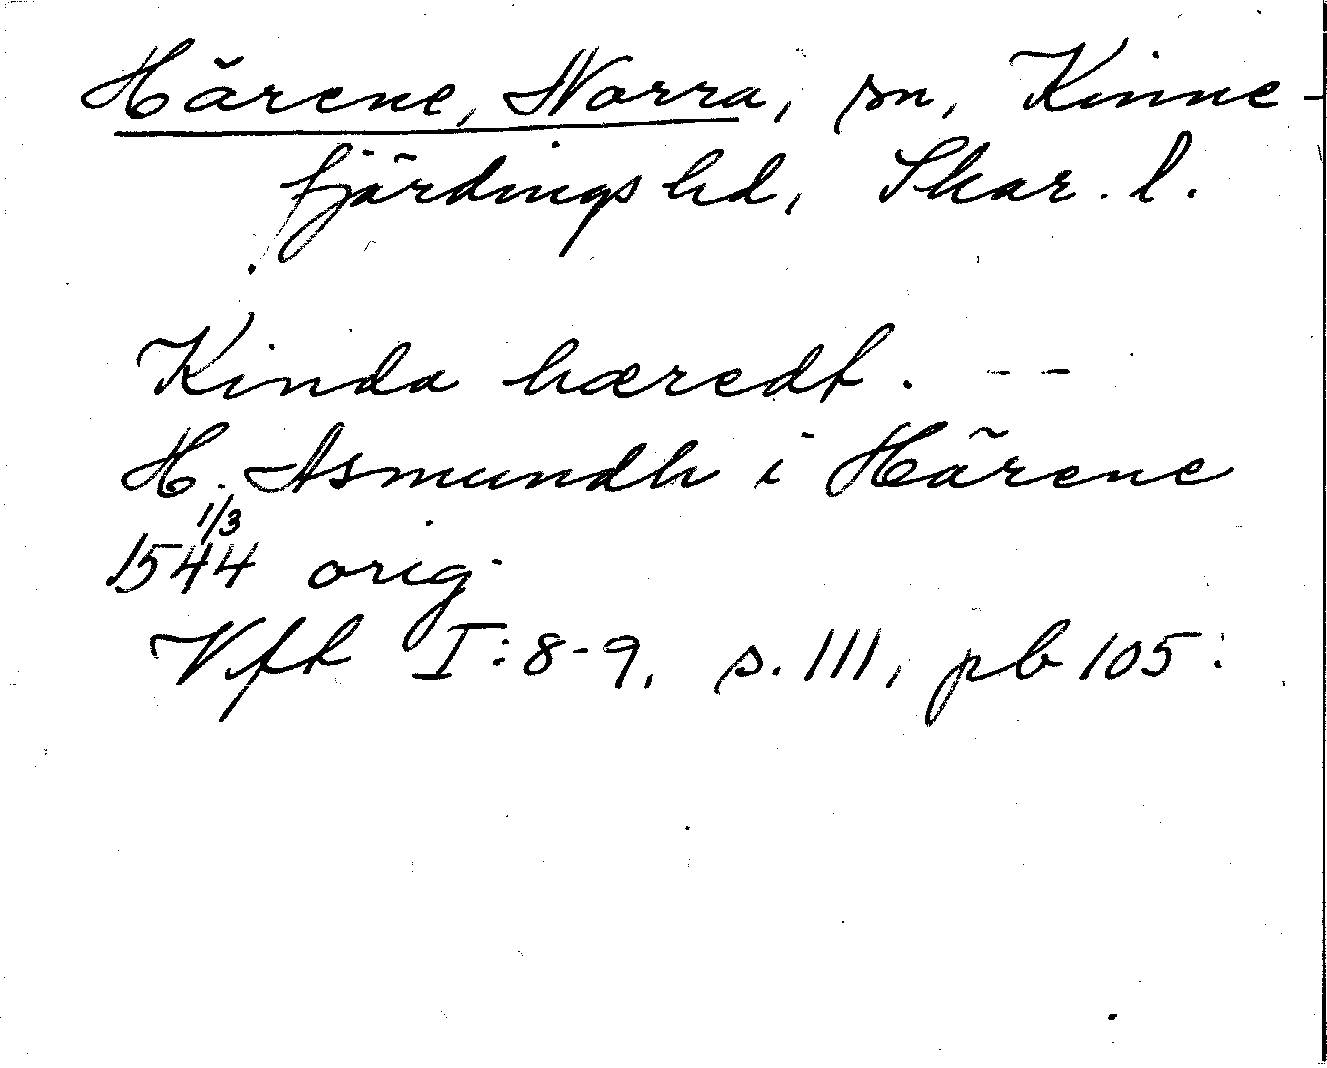 Härene, Norra, sn, Kinne-
fjärdings hd, Skar. l.
Kinda hæredt. --
H. Asmundh i Härene
1/3
1544 orig.
Vfh I:8-9, s. 111, pb 105: